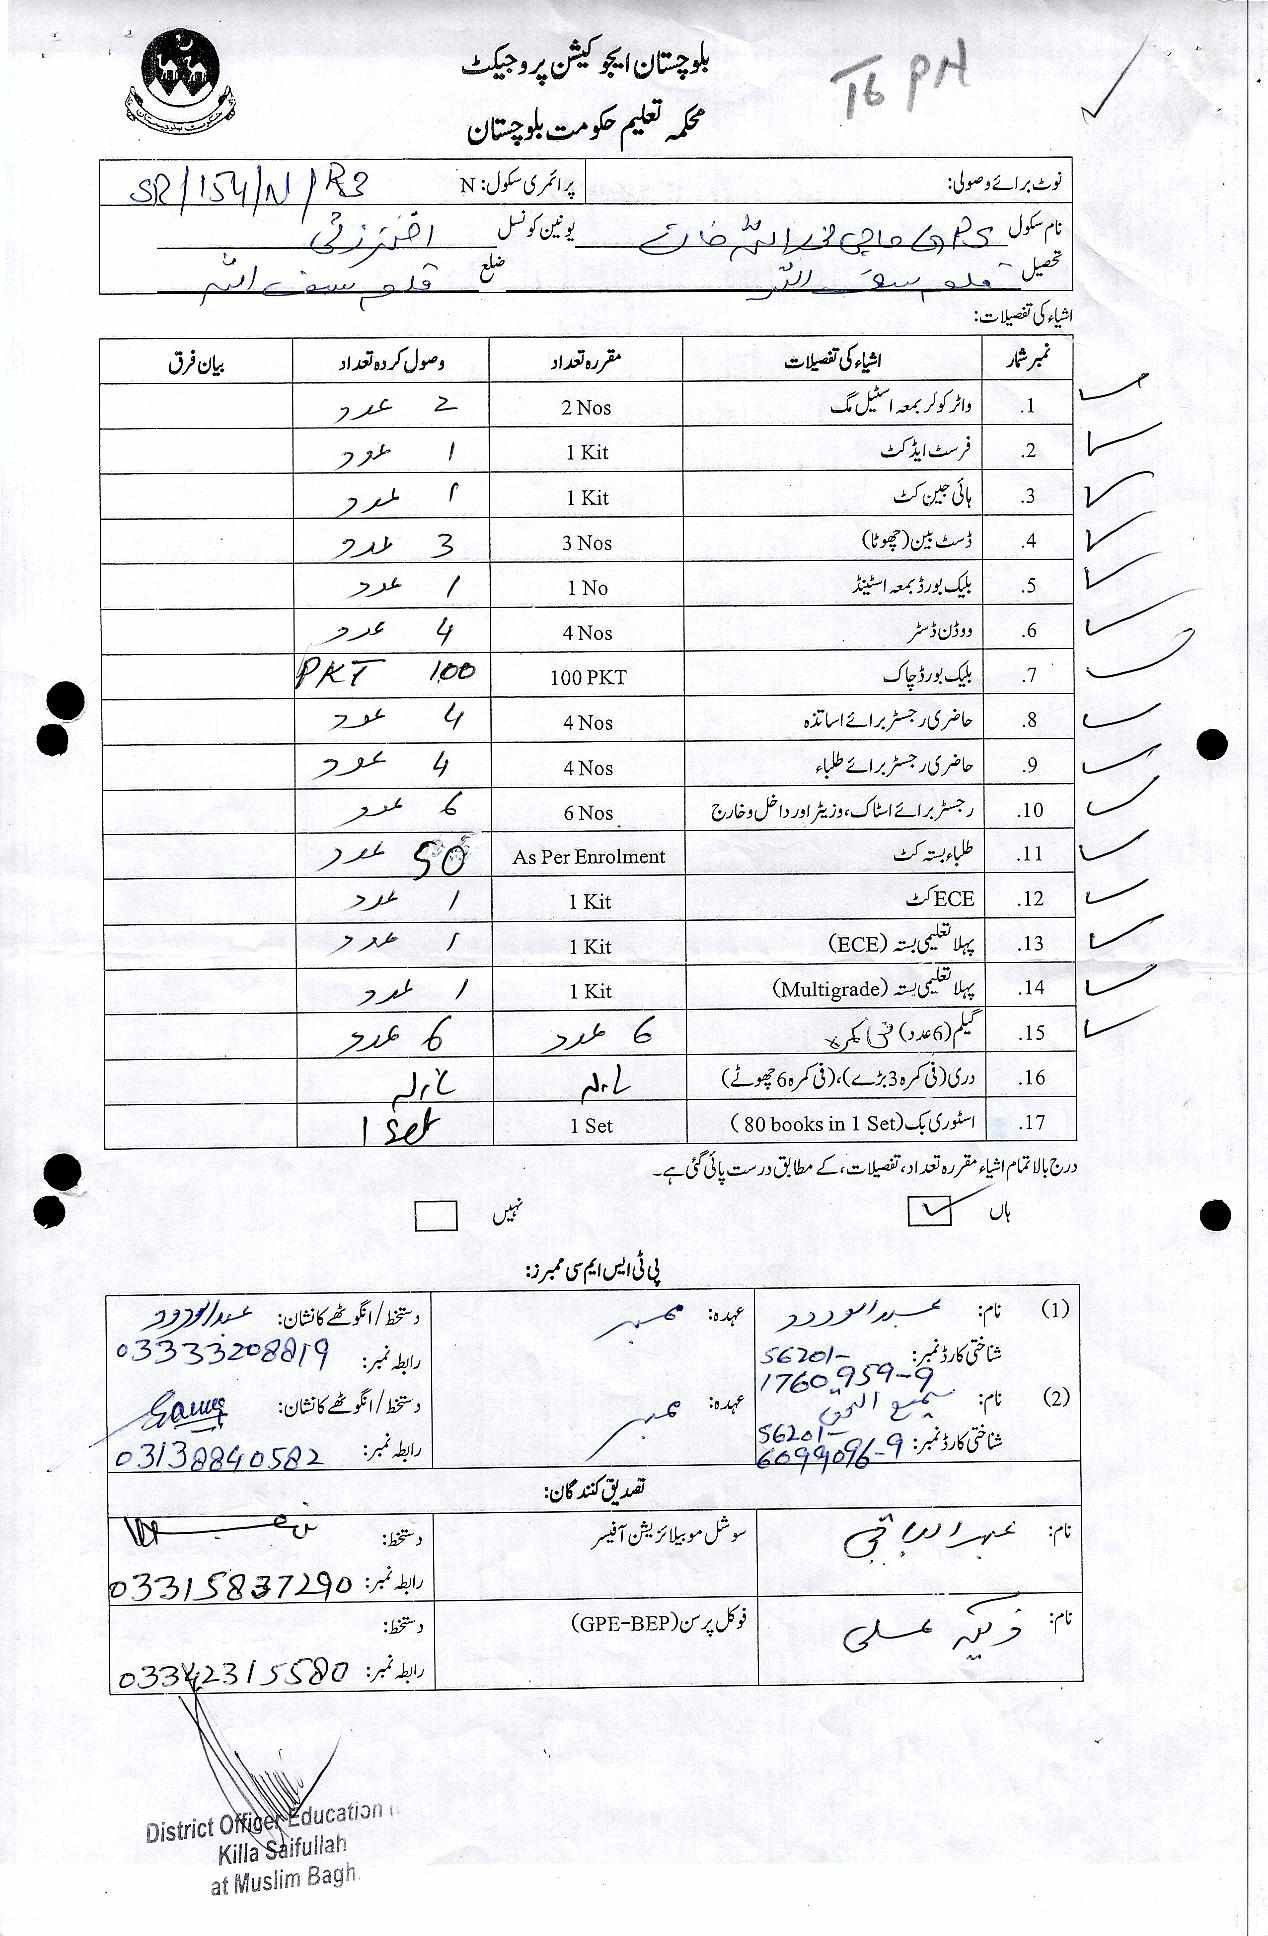 بلوچستان ایجوکیشن پروجیکٹ
محکمہ تعلیم حکومت بلوچستان
T6 PN
نوٹ برائے وصولی: پرائمری سکول: N SR/154/N/R3
نام سکول GPS حاجی اللہ یونین کونسل اخترزئی
تحصیل قلعہ سیف اللہ ضلع قلعہ سیف اللہ
اشیاء کی تفصیلات:
نمبر شمار اشیاء کی تفصیلات مقررہ تعداد وصول کردہ تعداد بیان فرق
1. واٹر کولر بمعہ اسٹیل مگ 2 Nos 2 عدد
2. فرسٹ ایڈ کٹ 1 Kit 1 عدد
3. ہائی جین کٹ 1 Kit 1 عدد
4. ڈسٹ بین (چھوٹا) 3 Nos 3 عدد
5. بلیک بورڈ بمعہ اسٹینڈ 1 No 1 عدد
6. ووڈن ڈسٹر 4 Nos 4 عدد
7. بلیک بورڈ چاک 100 PKT 100 PKT
8. حاضری رجسٹر برائے اساتذہ 4 Nos 4 عدد
9. حاضری رجسٹر برائے طلباء 4 Nos 4 عدد
10. رجسٹر برائے اسٹاک، وزیٹر اور داخل و خارج 6 Nos 6 عدد
11. طلباء بستہ کٹ As Per Enrolment 50 عدد
12. ECE کٹ 1 Kit 1 عدد
13. پہلا تعلیمی بستہ (ECE) 1 Kit 1 عدد
14. پہلا تعلیمی بستہ (Multigrade) 1 Kit 1 عدد
15. گلیم (6 عدد) فی کمرہ 6 عدد 6 عدد
16. دری (فی کمرہ 3 بڑے)، (فی کمرہ 6 چھوٹے)
17. اسٹوری بک (80 books in 1 Set) 1 Set 1 Set
درج بالا تمام اشیاء مقررہ تعداد، تفصیلات، کے مطابق درست پائی گئی ہے۔
ہاں نہیں
پی ٹی ایس ایم سی ممبرز:
(1) نام: عبدالودود عہدہ: ممبر دستخط/انگوٹھے کا نشان: عبدالودود
شناختی کارڈ نمبر: 56201-1760959-9 رابطہ نمبر: 03333208819
(2) نام: سمیع الحق عہدہ: ممبر دستخط/انگوٹھے کا نشان:
شناختی کارڈ نمبر: 56201-6099096-9 رابطہ نمبر: 03138840582
تصدیق کنندگان:
نام: عبدالباقی سوشل موبیلائزیشن آفیسر دستخط:
رابطہ نمبر: 03315837290
نام: فوکل پرسن (GPE-BEP) دستخط:
رابطہ نمبر: 03342315580
District Officer Education
Killa Saifullah
at Muslim Bagh